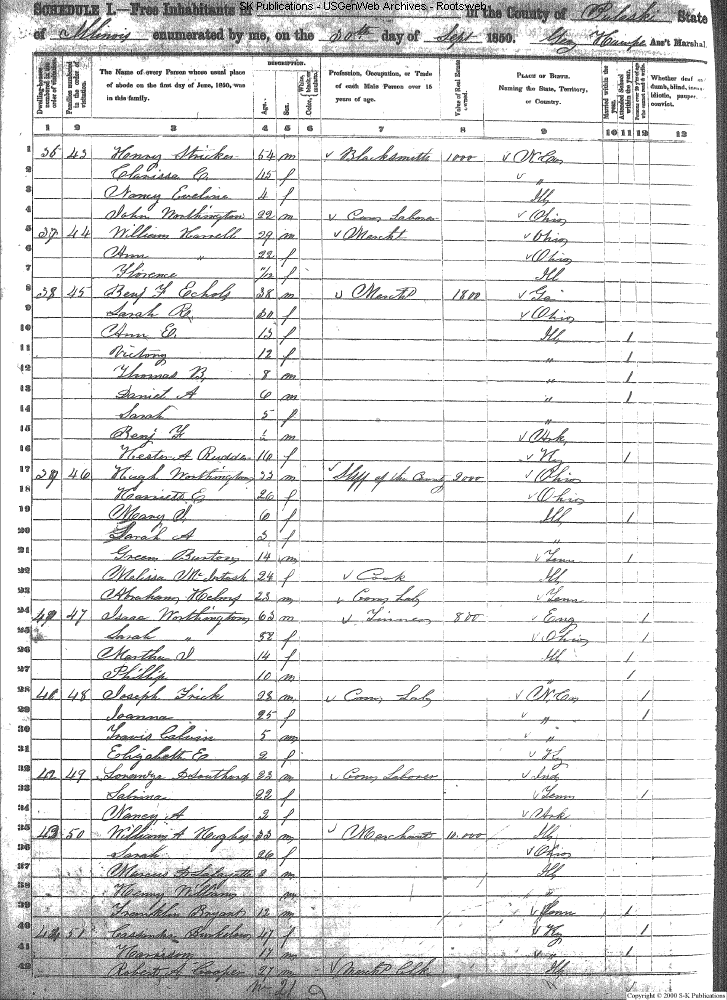 SK Publications - USGenWeb Archives - Rootsweb
SCHEDULE I.—Free Inhabitants in in the County of Pulaski State
of Illinois enumerated by me, on the 30th day of Sept 1850. Ass't Marshal.
Dwelling-houses numbered in the order of visitation.
Families numbered in the order of visitation.
The Name of every Person whose usual place of abode on the first day of June, 1850, was in this family.
DESCRIPTION.
Age. Sex. Color,
Profession, Occupation, or Trade of each Male Person over 15 years of age.
Value of Real Estate owned.
PLACE OF BIRTH. Naming the State, Territory, or Country.
Married within the year.
Attended School within the year.
Whether deaf and dumb, blind, insane, idiotic, pauper, convict.
1 2 3 4 5 6 7 8 9 10 11 12 13
1 36 43 Henry Stricker 54 m Blacksmith 1000 N Ca
2 Clarissa C. 45 f "
3 Nancy Eveline 4 f Ill
4 John Worthington 22 m Com Laborer Ohio
5 37 44 William Harrell 29 m Mercht Ohio
6 Ann " 22 f Ohio
7 Florence f Ill
8 38 45 Benj F Echols 38 m Mercht 1800 Ga
9 Sarah R. 30 f Ohio
10 Ann E. 13 f Ill 1
11 12 f " 1
12 Thomas B. 8 m " 1
13 Daniel A 6 m " 1
14 Sarah 5 f "
15 Benj F m Ark
16 Hester A Rudder 16 f Ky 1
17 39 46 Hugh Worthington 33 m Shff of the County 2000 Ohio
18 Harriett E 26 f Ohio
19 Mary J. 6 f Ill 1
20 Sarah A 3 f "
21 Green Burton 14 m Tenn 1
22 Malissa McIntosh 24 f Cook Ill
23 Abraham Helms 23 m Com Lab Tenn
24 40 47 Isaac Worthington 63 m Tinner 800 Eng 1
25 Sarah " 52 f Ohio 1
26 Martha J 14 f Ill 1
27 Phillip 10 m " 1
28 48 Joseph Frick 28 m Com Lab N Ca 1
29 Joanna 25 f " 1
30 Travis Calvin 5 m "
31 Elizabeth E 2 f
32 42 49 Lorenzo D Southard 23 m Com Laborer Ind
33 Sabrina 22 f Tenn 1
34 Nancy A 2 f Ark
35 43 50 William A Hughes 33 m Merchant 10.000 Ill
36 Sarah 26 f Ohio
37 Marcus D Lafayette 3 m Ill
38 Henry William m "
39 Franklin Bryant 12 m 1
40 51 47 f Ky 1
41 Harrison 17 m " 1
42 Robert A Cooper 27 m Mercht Clk Ill
Copyright © 2000 S-K Publications